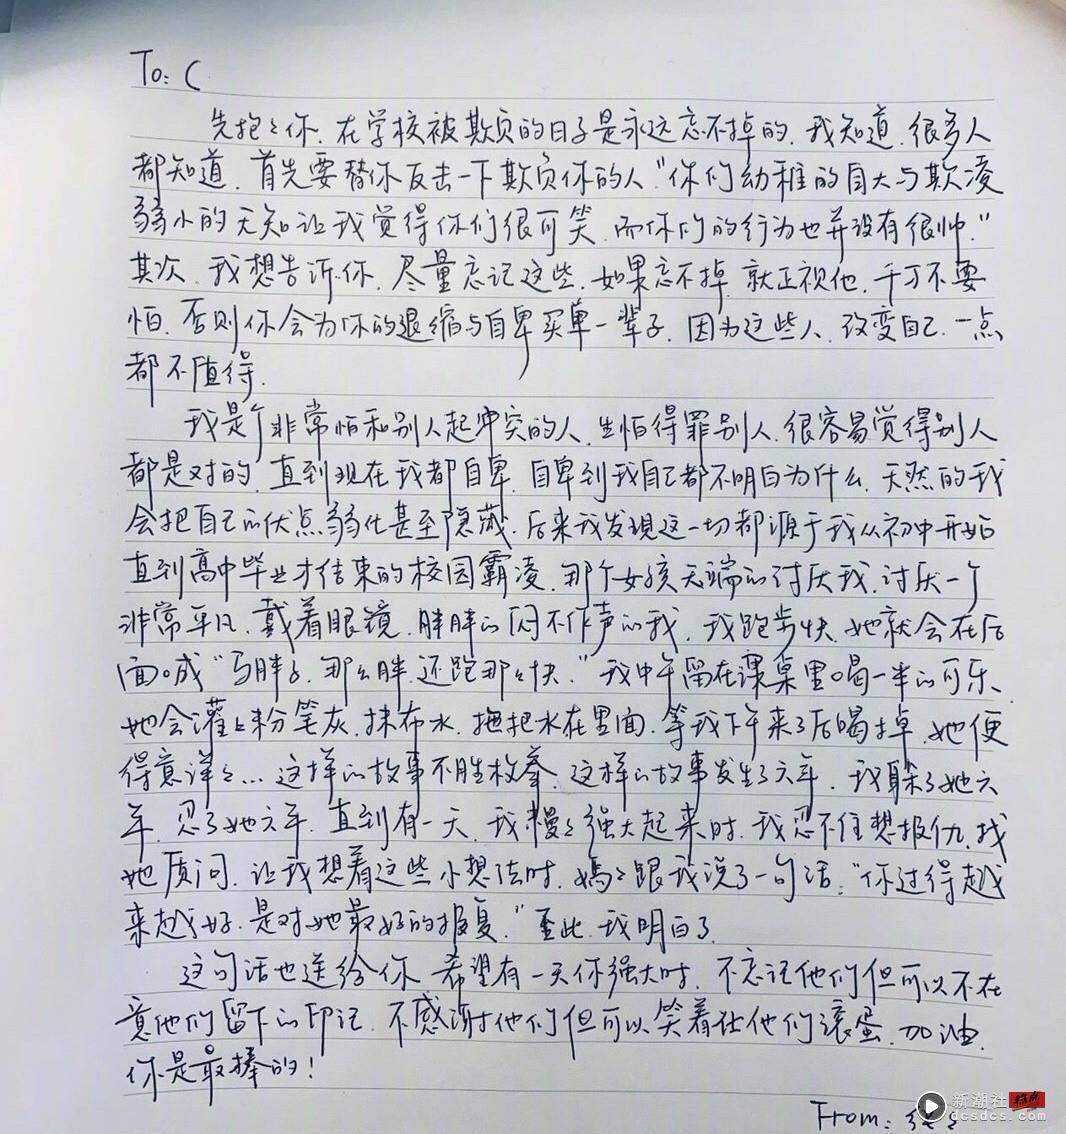 To: C
先抱々你.在学校被欺负的日子是永远忘不掉的.我知道.很多人
都知道.首先要替你反击一下欺负你的人."你们幼稚的自大与欺凌
弱小的无知让我觉得你们很可笑.而你们的行为也并没有很帅."
其次.我想告诉你.尽量忘记这些.如果忘不掉.就正视他.千万不要
怕.否则你会为你的退缩与自卑买单一辈子.因为这些人.改变自己.一点
都不值得.
我是个非常怕和别人起冲突的人.生怕得罪别人.很容易觉得别人
都是对的.直到现在我都自卑.自卑到我自己都不明白为什么.天然的我
会把自己的优点弱化甚至隐藏.后来我发现这一切都源于我从初中开始
直到高中毕业才结束的校园霸凌.那个女孩无端的讨厌我.讨厌一个
非常平凡.戴着眼镜.胖胖的闷不作声的我.我跑步快.她就会在后
面喊"马胖子.那么胖.还跑那么快."我中午留在课桌里喝一半的可乐、
她会灌上粉笔灰.抹布水.拖把水在里面.等我下午来了后喝掉.她便
得意洋々...这样的故事不胜枚举.这样的故事发生了六年.我躲了她六
年.忍了她六年.直到有一天.我慢々强大起来时.我忍不住想报仇.找
她质问.让我想着这些小想法时.妈々跟我说了一句话:"你过得越
来越好.是对她最好的报复."至此.我明白了.
这句话也送给你.希望有一天你强大时.不忘记他们但可以不在
意他们留下的印记.不感谢他们但可以笑着让他们滚蛋.加油.
你是最棒的!
From:
新潮社
dcsdcs.com